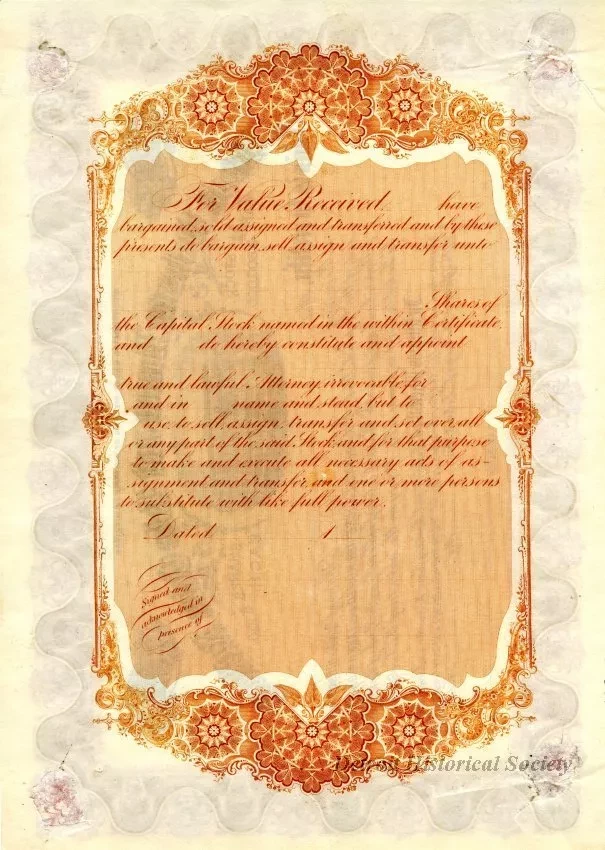 For Value Received have
bargained, sold, assigned and transferred and by these
presents do bargain, sell, assign and transfer unto
Shares of
the Capital Stock named in the within Certificate,
and do hereby constitute and appoint
true and lawful Attorney, irrevocable for
and in name and stead, but to
use, to sell, assign, transfer and set over, all
or any part of the said Stock, and for that purpose
to make and execute all necessary acts of as-
signment and transfer, and one or more persons
to substitute with like full power.
Dated 1
Signed and
acknowledged in
presence of
Detroit Historical Society